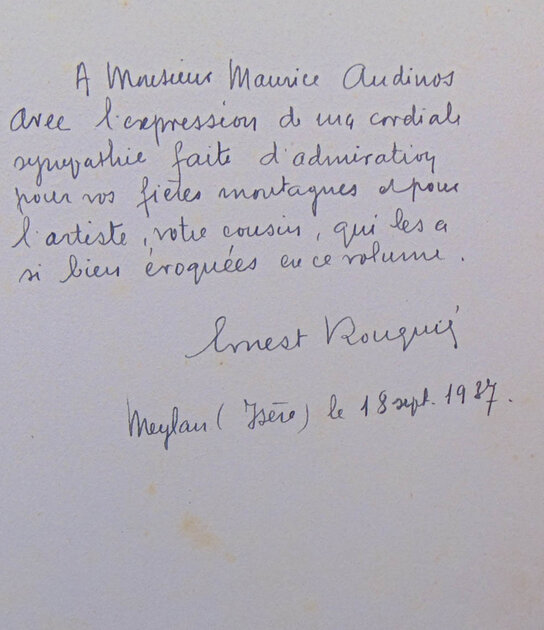 A Monsieur Maurice Audinos
avec l'expression de ma cordiale
sympathie faite d'admiration
pour vos fières montagnes et pour
l'artiste, votre cousin, qui les a
si bien évoquées en ce volume.
Ernest Rouquié
Meylan (Isère) le 18 sept. 1937.